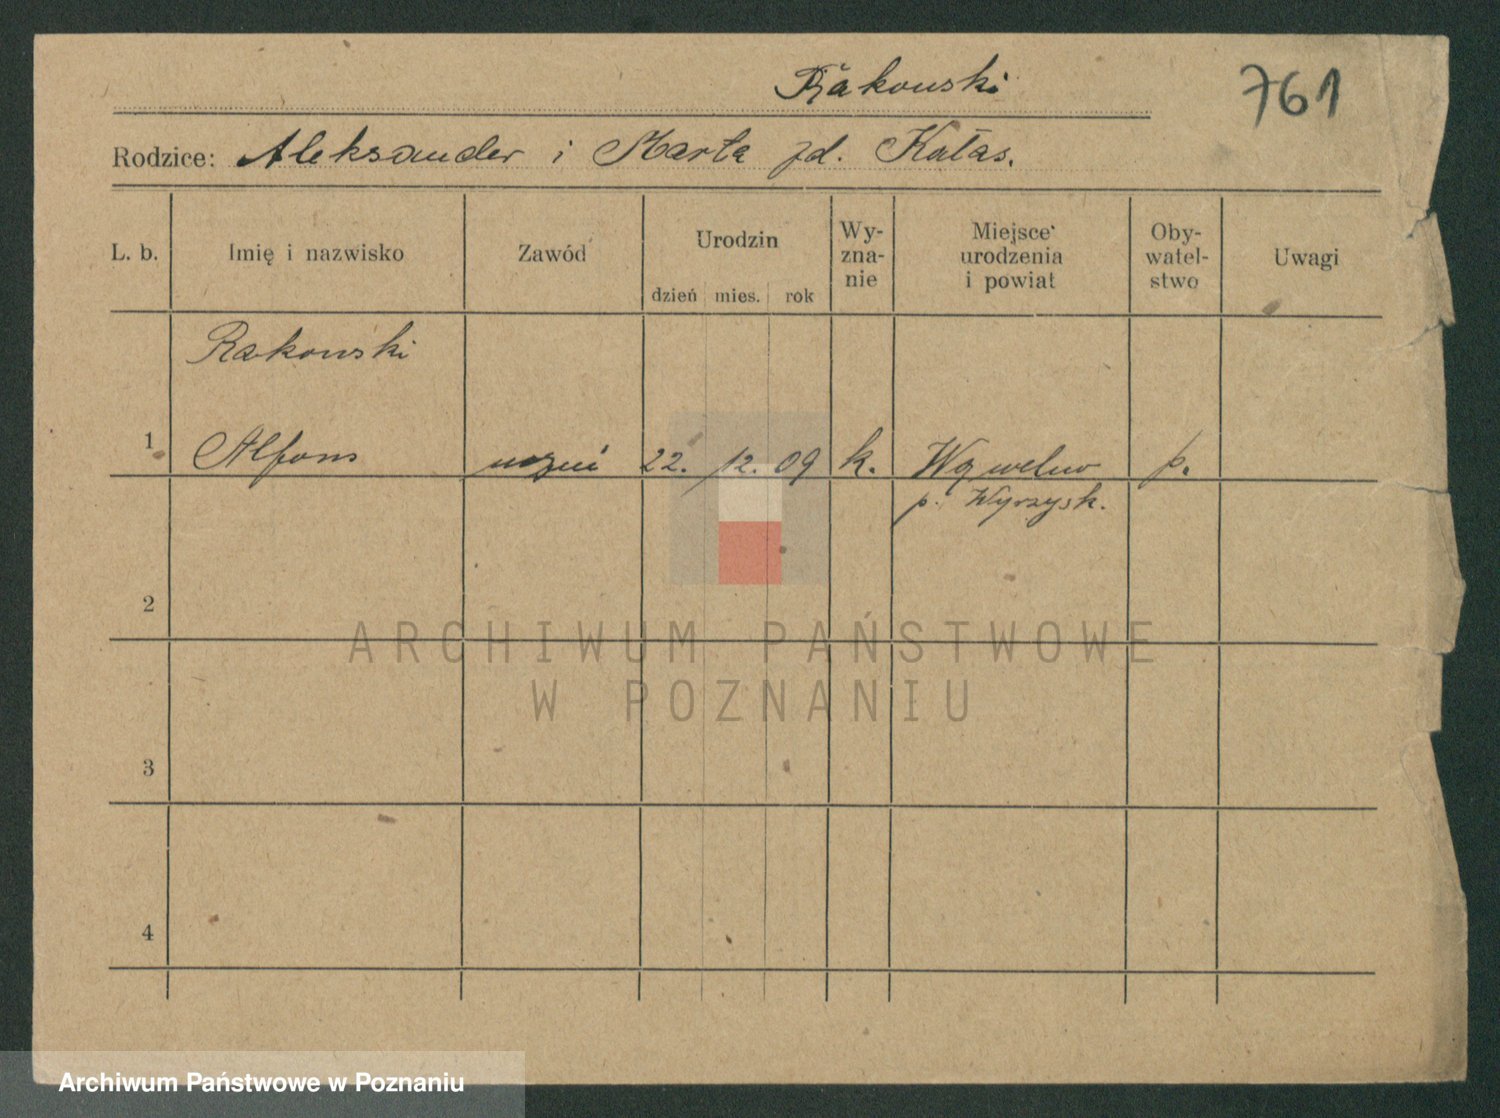 Rakowski
761
Rodzice: Aleksander i Marta zd. Kałas.
L. b.
Imię i nazwisko
Zawód
Urodzin
dzień mies. rok
Wy-
zna-
nie
Miejsce
urodzenia
i powiat
Oby-
watel-
stwo
Uwagi
Rakowski
1 Alfons uczeń 22. 12. 09 k. p.
p. Wyrzysk.
2
3
4
ARCHIWUM PAŃSTWOWE
W POZNANIU
Archiwum Państwowe w Poznaniu